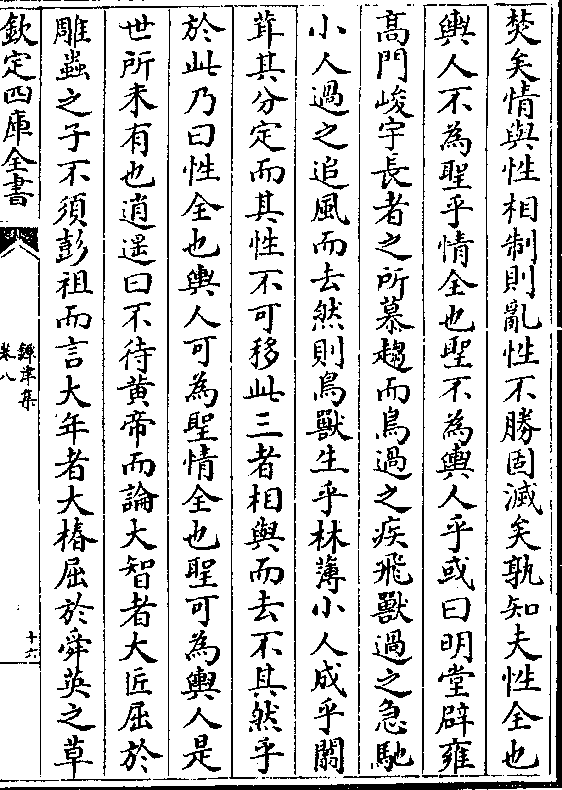 焚矣情與性相制則亂性不勝固滅矣孰知夫性全也
輿人不為聖乎情全也聖不為輿人乎或曰明堂辟雍
髙門峻宇長者之所慕趨而鳥過之疾飛獸過之急馳
小人過之追風而去然則鳥獸生乎林薄小人成乎闒
茸其分定而其性不可移此三者相與而去不其然乎
於此乃曰性全也輿人可為聖情全也聖可為輿人是
世所未有也逍遥曰不待黄帝而論大智者大匠屈於
雕蟲之子不須彭祖而言大年者大椿屈於舜英之草
欽定四庫全書
鐔津集
卷八
十六